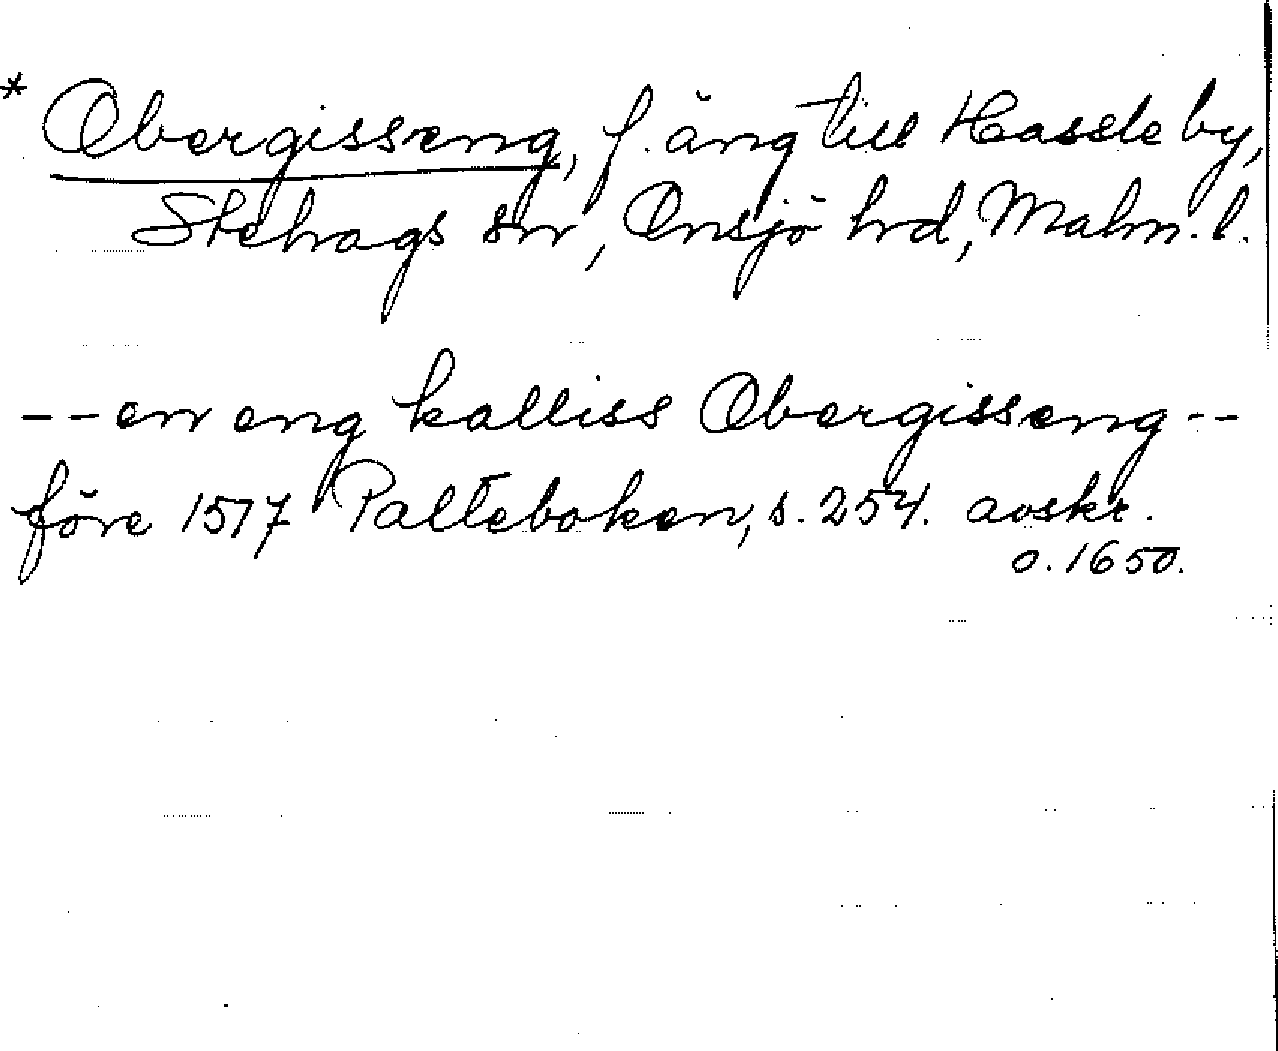 * Obergisseng, f. äng till Hassle by,
Stehags sn, Onsjö hrd, Malm. l.
-- en eng kalliss Obergisseng --
före 1517 Palteboken, s. 254. avskr.
o. 1650.